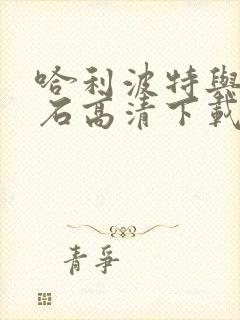 哈利波特與
石高清下載
青爭